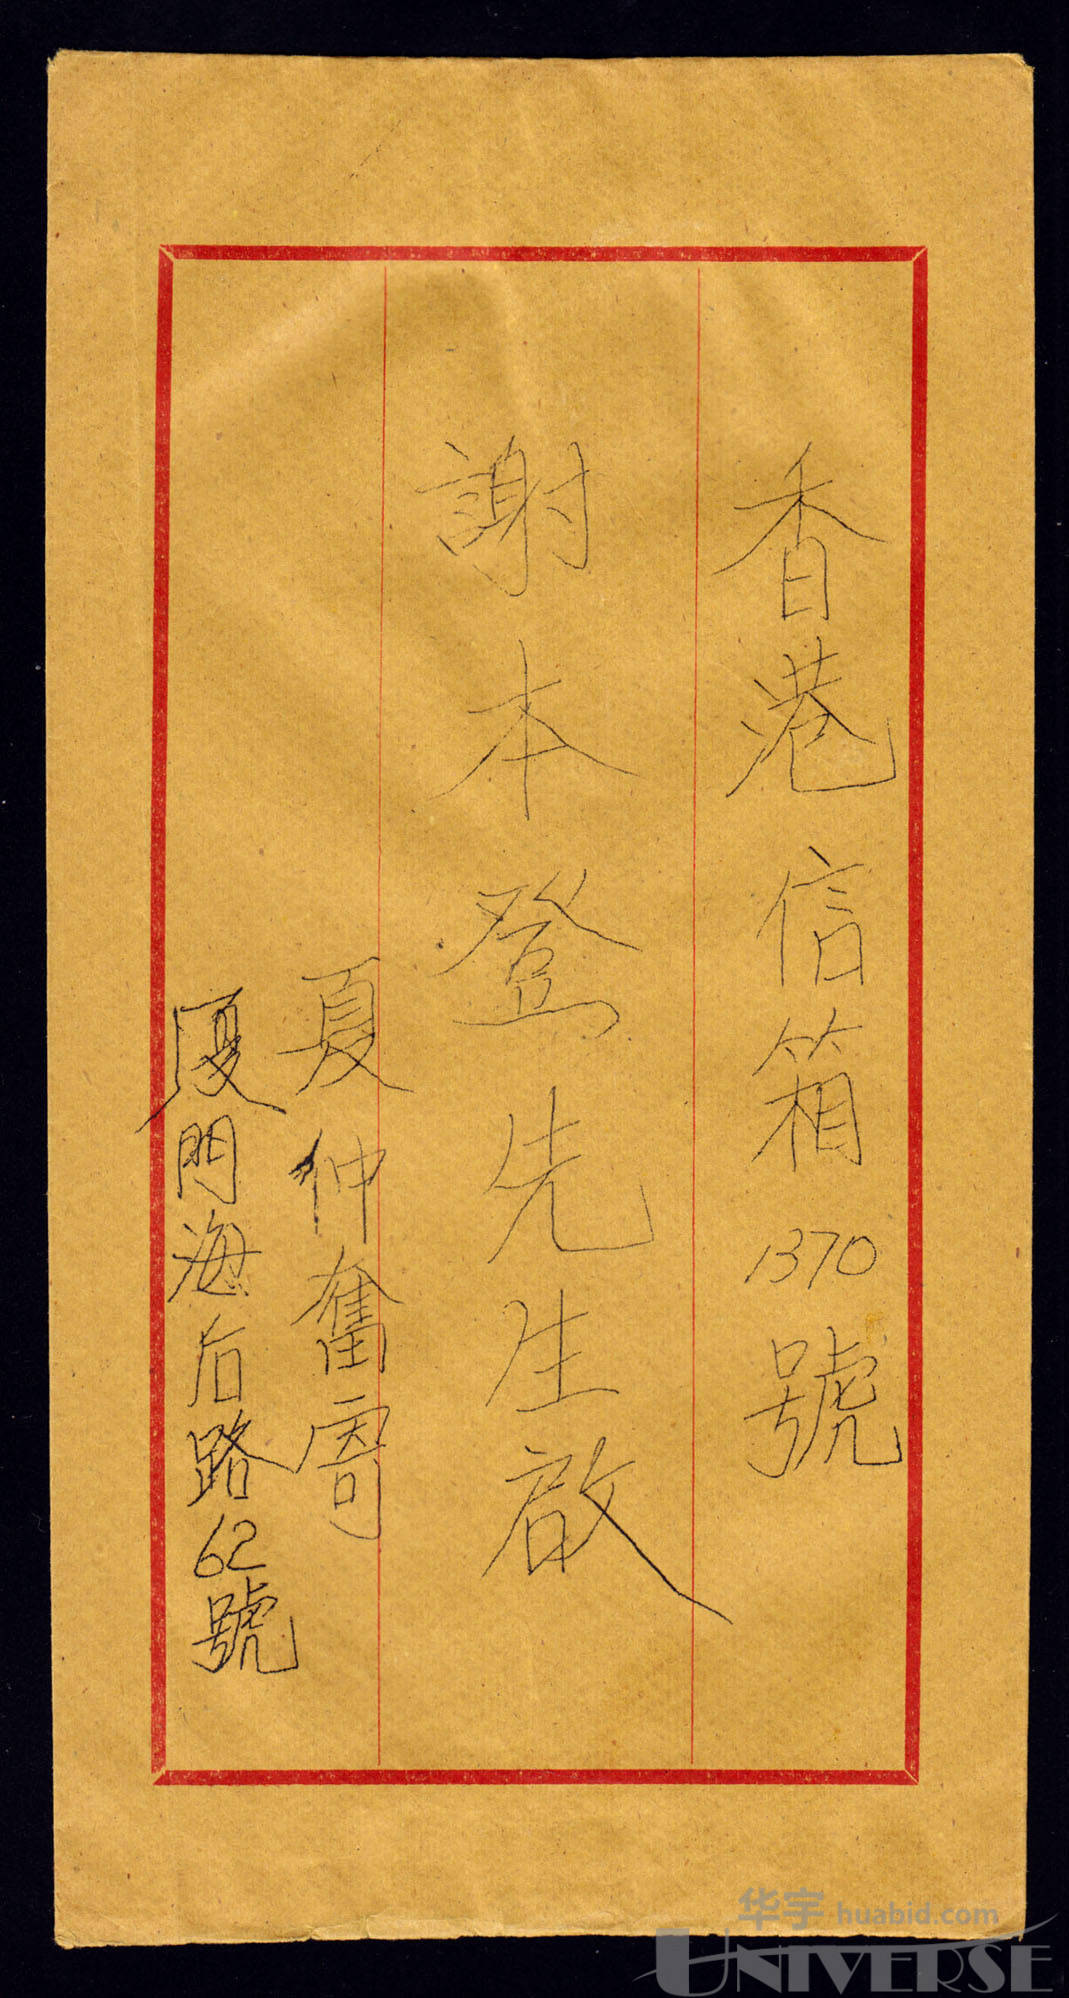 香港信箱1370號
謝本登先生啟
夏仲奮
厦門海后路62號
华宇 huabid.com
UNIVERSE